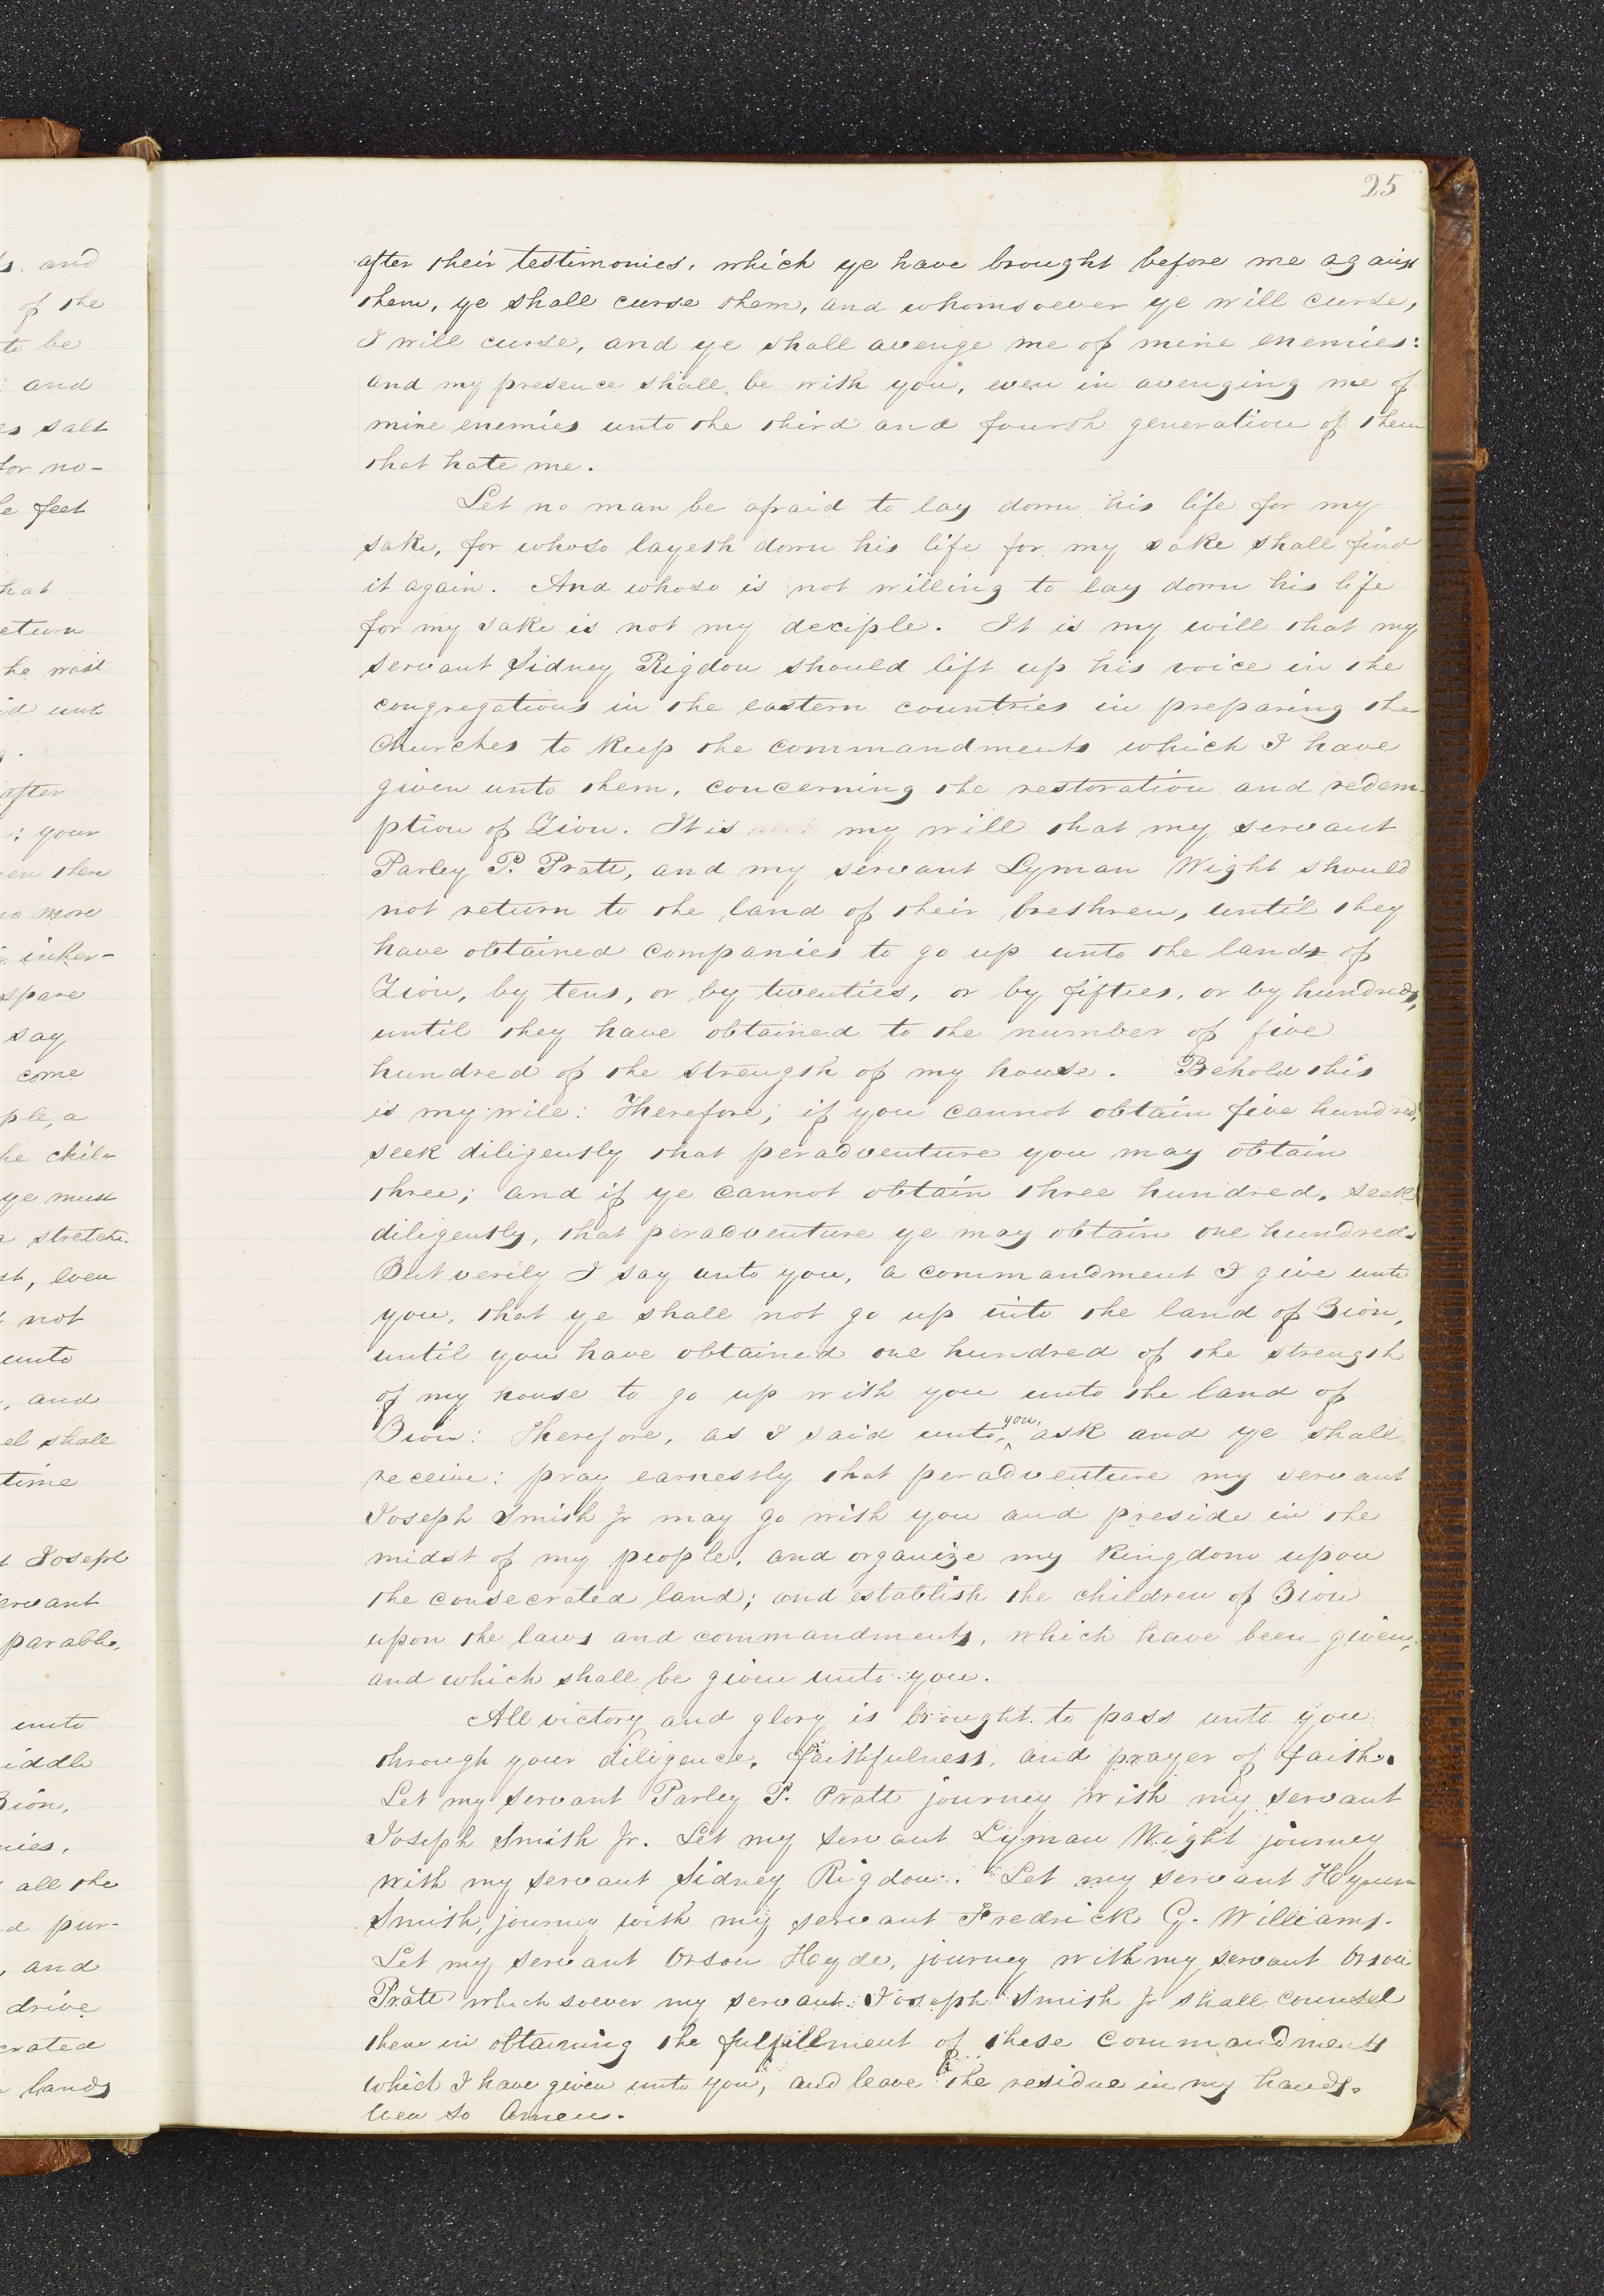 25
after their testimonies, which ye have brought before me against
them, ye shall curse them, and whomsoever ye will curse,
I will curse, and ye shall avenge me of mine enemies:
and my presence shall be with you, even in avenging me of
mine enemies unto the third and fourth generation of them
that hate me.
Let no man be afraid to lay down his life for my
sake, for whoso layeth down his life for my sake shall find
it again. And whoso is not willing to lay down his life
for my sake is not my deciple. It is my will that my
servant Sidney Rigdon should lift up his voice in the
congregations in the eastern countries in preparing the
Churches to keep the commandments which I have
given unto them, concerning the restoration and redem-
ption of Zion. It is my will that my servant
Parley P. Pratt, and my servant Lyman Wight should
not return to the land of their brethren, until they
have obtained companies to go up unto the lands of
Zion, by tens, or by twenties, or by fifties, or by hundreds,
until they have obtained to the number of five
hundred of the strength of my house. Behold this
is my will: Therefore, if you cannot obtain five hundred,
seek diligently that peradventure you may obtain
three; and if ye cannot obtain three hundred, seek
diligently, that peradventure ye may obtain one hundred.
But verily I say unto you, a commandment I give unto
you, that ye shall not go up into the land of Zion,
until you have obtained one hundred of the strength
of my house to go up with you unto the land of
Zion: Therefore, as I said unto, you, ask and ye shall
receive: pray earnestly that peradventure my servant
Joseph Smith Jr may go with you and preside in the
midst of my people, and organize my kingdom upon
the consecrated land; and establish the children of Zion
upon the laws and commandments, which have been given,
and which shall be given unto you.
All victory and glory is brought to pass unto you
through your diligence, faithfulness, and prayer of faith.
Let my servant Parley P. Pratt journey with my servant
Joseph Smith Jr. Let my servant Lyman Wight journey
with my servant Sidney Rigdon. Let my servant Hyrum
Smith, journey with my servant Fredrick G. Williams.
Let my servant Orson Hyde, journey with my servant Orson
Pratt whichsoever my servant Joseph Smith Jr shall counsel
them in obtaining the fulfillment of these commandments
which I have given unto you, and leave the residue in my hands.
Even so Amen.